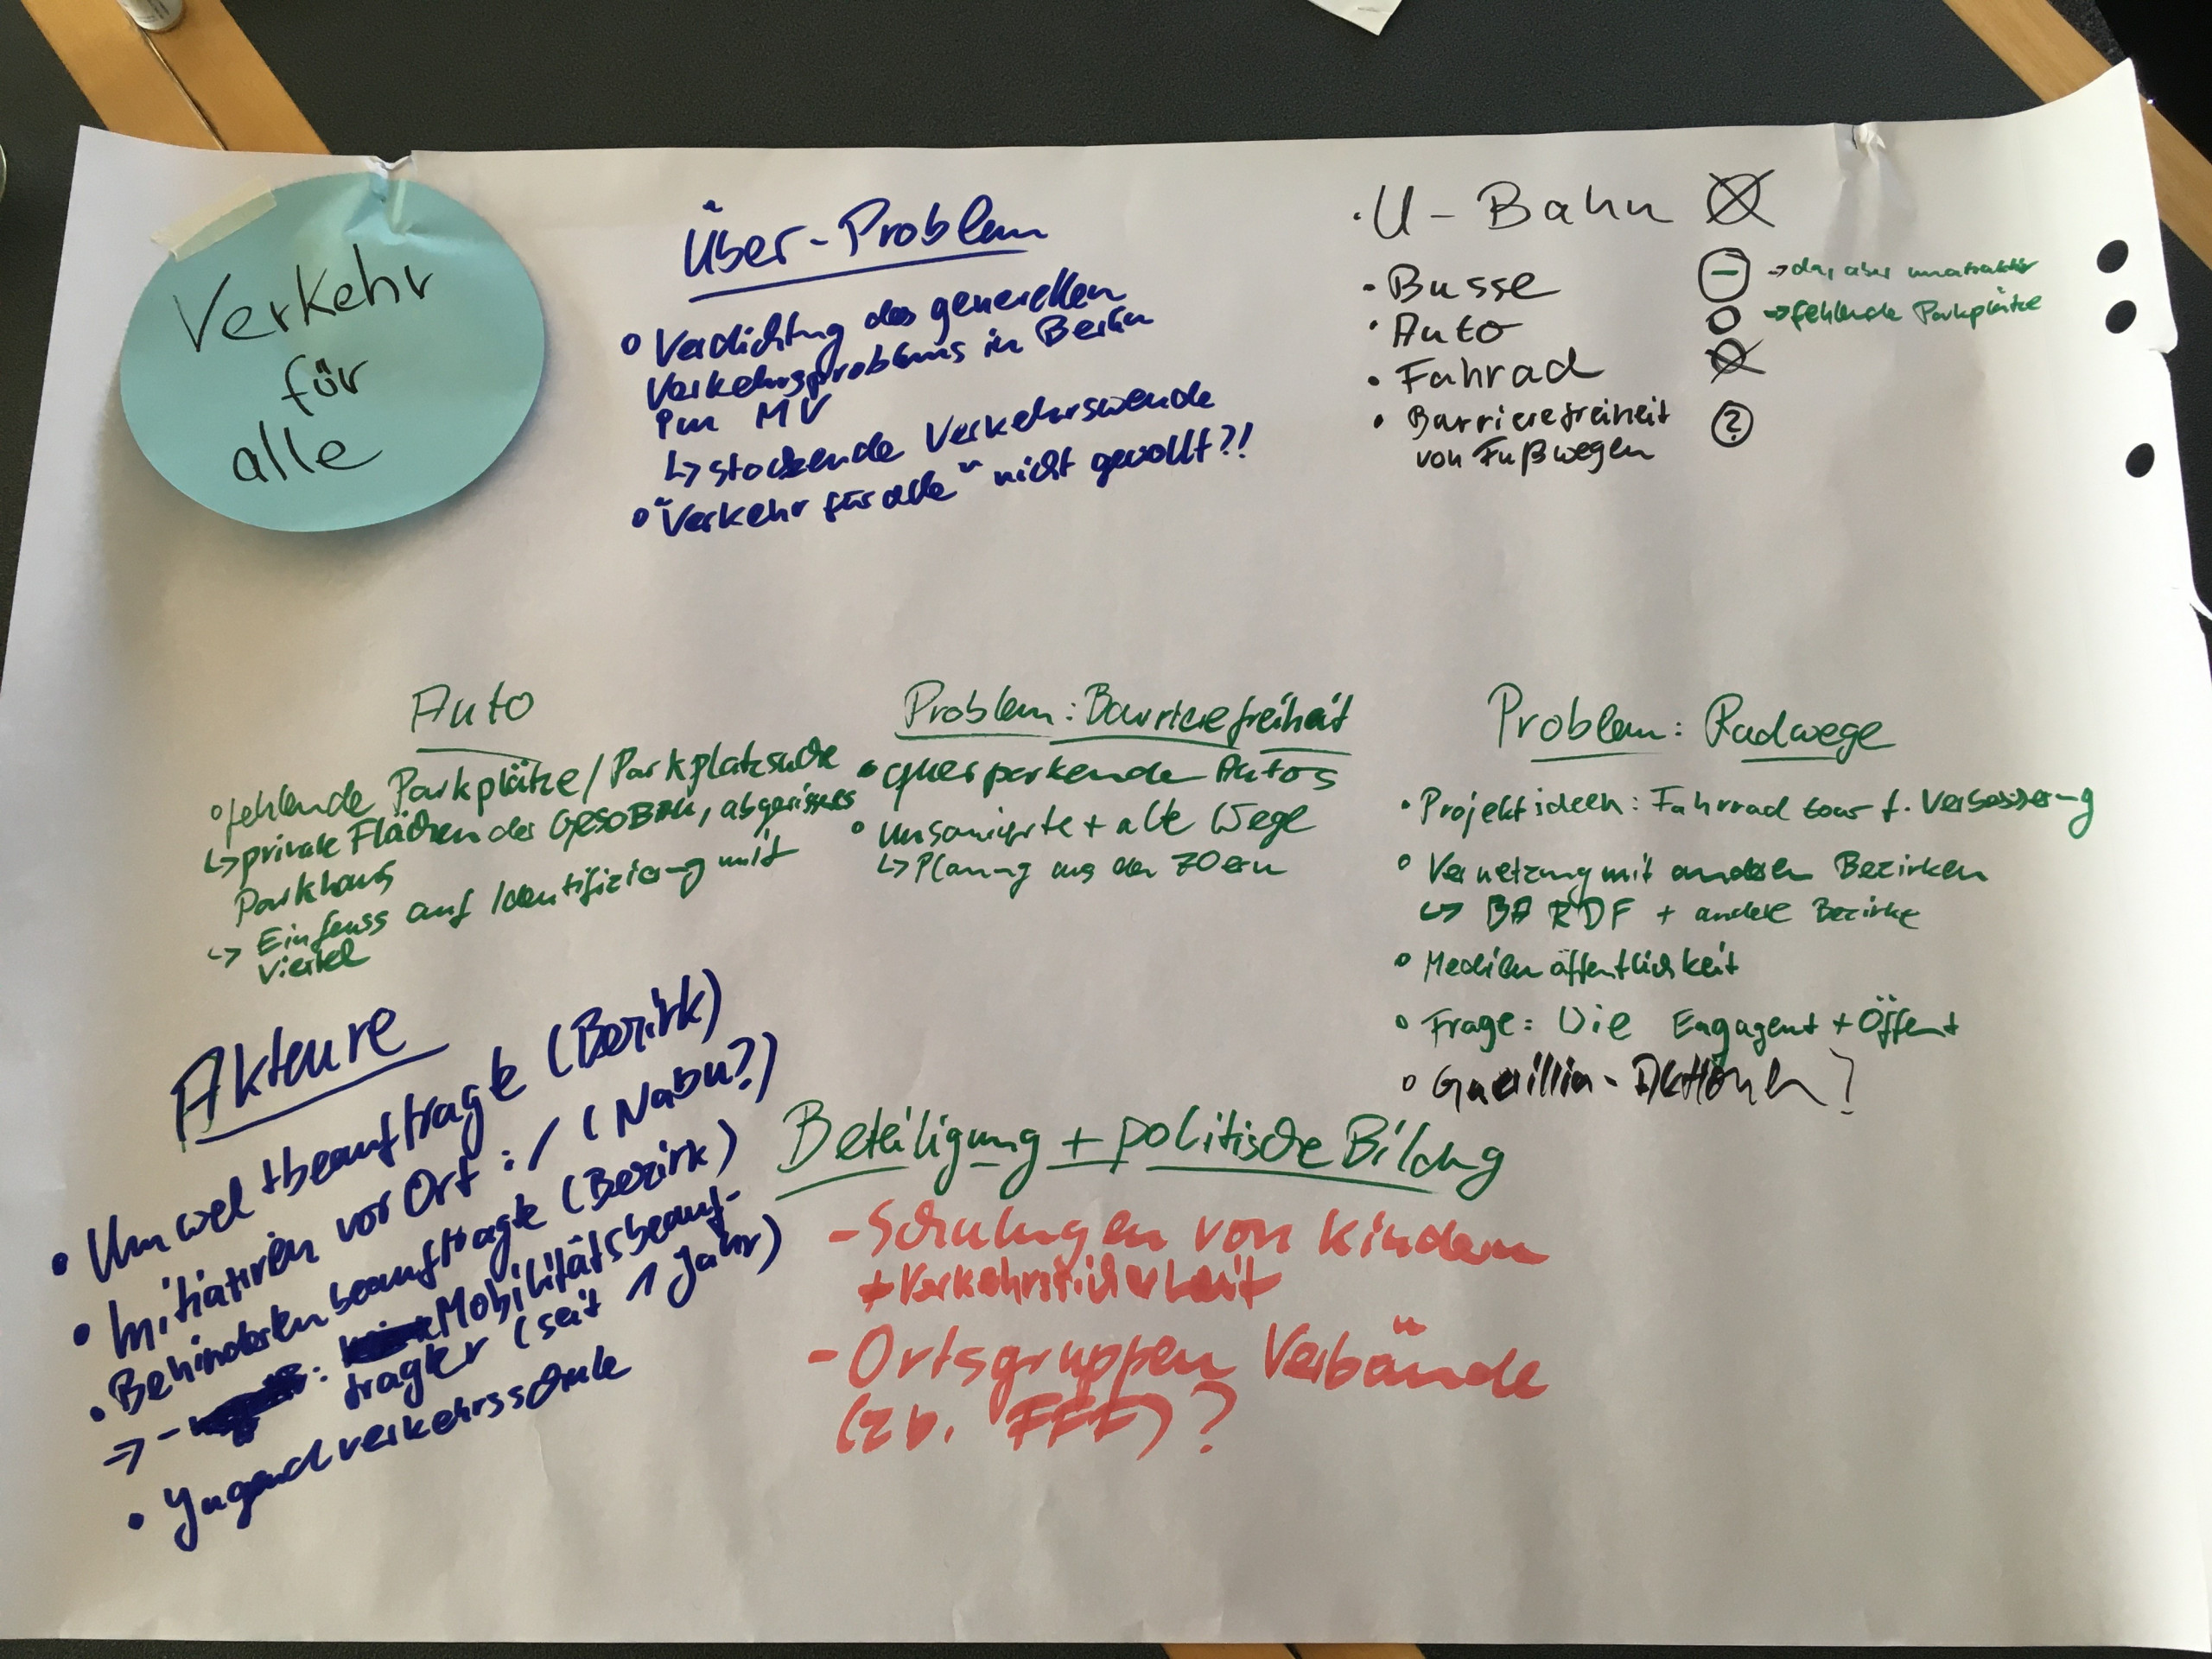 Verkehr
für
alle
Über-Problem
o Verdichtung des generellen
Verkehrsproblems in Berlin
im MV
↳ stockende Verkehrswende
o "Verkehr für alle" nicht gewollt?!
• U-Bahn
- Busse → da, aber unattraktiv
• Auto → fehlende Parkplätze
• Fahrad
• Barrierefreiheit ?
von Fußwegen
Auto
o fehlende Parkplätze/Parkplatzsuche
↳ private Flächen der GESOBAU, abgerissenes
Parkhaus
↳ Einfluss auf Identifizierung mit
Viertel
Problem: Barrierefreiheit
• querparkende Autos
o unsanierte + alte Wege
↳ Planung aus den 70ern
Problem: Radwege
• Projektideen: Fahrrad tour f. Verbesserung
o Vernetzung mit anderen Bezirken
↳ BA RDF + andere Bezirke
o Medienöffentlichkeit
o Frage: Wie Engagent + Öffent
o Guerillia-Aktionen?
Akteure
• Umweltbeauftragte (Bezirk)
• Initiativen vor Ort :/ (Nabu?)
• Behindertenbeauftragte (Bezirk)
→ - : Mobilitätsbeauf-
tragter (seit 1 Jahr)
• Jugendverkehrsschule
Beteiligung + politische Bildung
- Schulungen von Kindern
+ Verkehrssicherheit
- Ortsgruppen Verbände
(zb. FFF)?